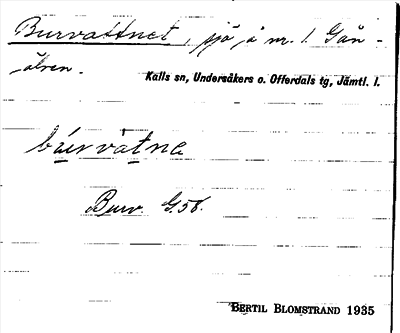 Burvattnet, sjö å nr. 1 Gån-
älven.
Kalls sn, Undersåkers o. Offerdals tg, Jämtl. l.
búrvàtne
Burv. G.58.
BERTIL BLOMSTRAND 1935